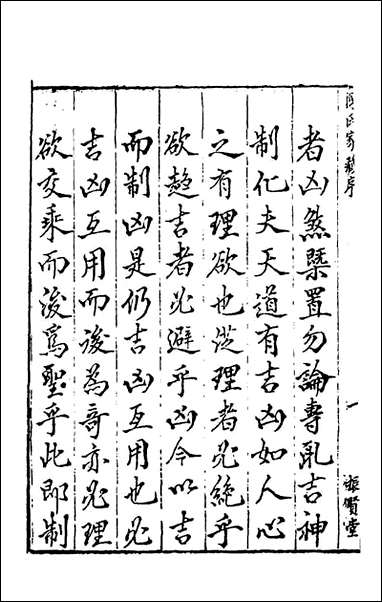 一
者凶煞槩置勿論專取吉神
制化夫天道有吉凶如人心
之有理欲也從理者必絶乎
欲趨吉者必避乎凶今以吉
而制凶是仍吉凶互用也必
吉凶互用而後為奇亦必理
欲交乘而後爲聖乎此即制